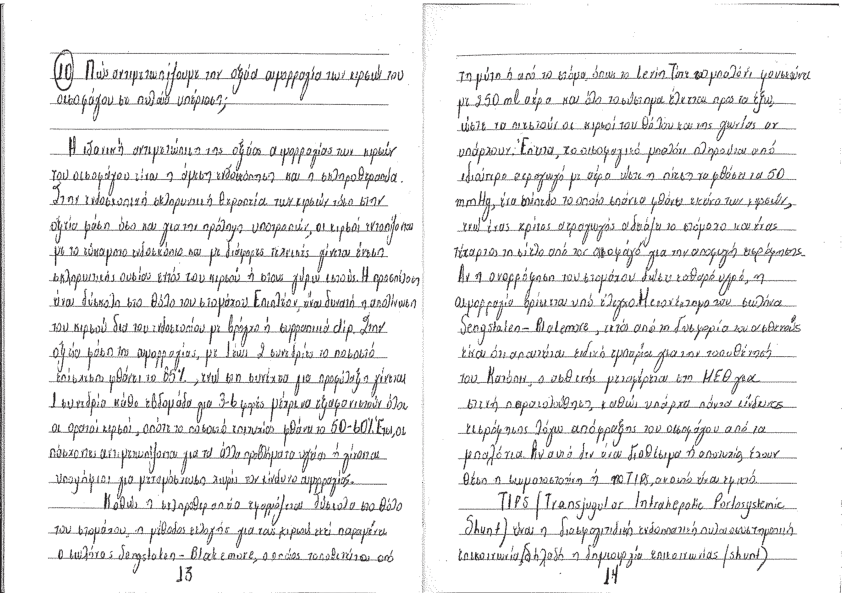 10 Πώς αντιμετωπίζουμε την οξεία αιμορραγία των κιρσών του
οισοφάγου σε πυλαία υπέρταση;
Η ιδανική αντιμετώπιση της οξείας αιμορραγίας των κιρσών
του οισοφάγου είναι η άμεση ενδοσκόπηση και η σκληροθεραπεία.
Στην ενδοσκοπική σκληρυντική θεραπεία των κιρσών τόσο στην
οξεία φάση όσο και για την πρόληψη υποτροπών, οι κιρσοί εντοπίζονται
με το εύκαμπτο ενδοσκόπιο και με διάφορες τεχνικές γίνεται ένεση
σκληρυντικής ουσίας εντός του κιρσού ή στους γύρω ιστούς. Η προσπέλαση
είναι δύσκολη στο θόλο του στομάχου. Επιπλέον, είναι δυνατή η απολίνωση
του κιρσού δια του ενδοσκοπίου με βρόγχο ή συρραπτικά clip. Στην
οξεία φάση της αιμορραγίας, με 1 έως 2 συνεδρίες το ποσοστό
επίσχεσης φθάνει το 85%, ενώ στη συνέχεια για προφύλαξη γίνεται
1 συνεδρία κάθε εβδομάδα για 3-6 φορές μέχρι να εξαφανιστούν όλοι
οι ορατοί κιρσοί, οπότε το ποσοστό επιτυχίας φθάνει το 50-60%. Έτσι, οι
πάσχοντες αντιμετωπίζονται για τα άλλα προβλήματα υγείας ή γίνονται
υποψήφιοι για μεταμόσχευση χωρίς τον κίνδυνο αιμορραγίας.
Καθώς η σκληροθεραπεία εφαρμόζεται δύσκολα στο θόλο
του στομάχου, η μέθοδος εκλογής για τους κιρσούς εκεί παραμένει
ο σωλήνας Sengstaken - Blakemore, ο οποίος τοποθετείται από
13
τη μύτη ή από το στόμα, όπως το Levin. Τότε το μπαλόνι φουσκώνει
με 250 ml αέρα και όλο το σύστημα έλκεται προς τα έξω,
ώστε να πιεστούν οι κιρσοί του θόλου και της γωνίας αν
υπάρχουν. Έπειτα, το οισοφαγικό μπαλόνι πληρούται από
ιδιαίτερο αεραγωγό με αέρα ώστε η πίεση να φθάσει τα 50
mmHg, ένα επίπεδο το οποίο σπάνια φθάνει εκείνο των κιρσών,
ενώ ένας τρίτος αεραγωγός αδειάζει το στομάχι και ένας
τέταρτος το σίελο από τον οισοφάγο για την αποφυγή εισρόφησης.
Αν η αναρρόφηση του στομάχου δώσει καθαρό υγρό, η
αιμορραγία βρίσκεται υπό έλεγχο. Μειονέκτημα του σωλήνα
Sengstaken - Blakemore, εκτός από τη δυσφορία του ασθενούς
είναι ότι απαιτείται ειδική εμπειρία για την τοποθέτησή
του. Κατόπιν, ο ασθενής μεταφέρεται στη ΜΕΘ για
στενή παρακολούθηση, καθώς υπάρχει πάντα κίνδυνος
εισρόφησης λόγω απόφραξης του οισοφάγου από τα
μπαλόνια. Αν αυτά δεν είναι διαθέσιμα ή αποτύχουν, έχουν
θέση η σωματοστατίνη ή το TIPS, αν αυτό είναι εφικτό.
TIPS (Transjugular Intrahepatic Portosystemic
Shunt) είναι η διασφαγιτιδική ενδοηπατική πυλαιοσυστηματική
επικοινωνία, δηλαδή η δημιουργία επικοινωνίας (shunt)
14